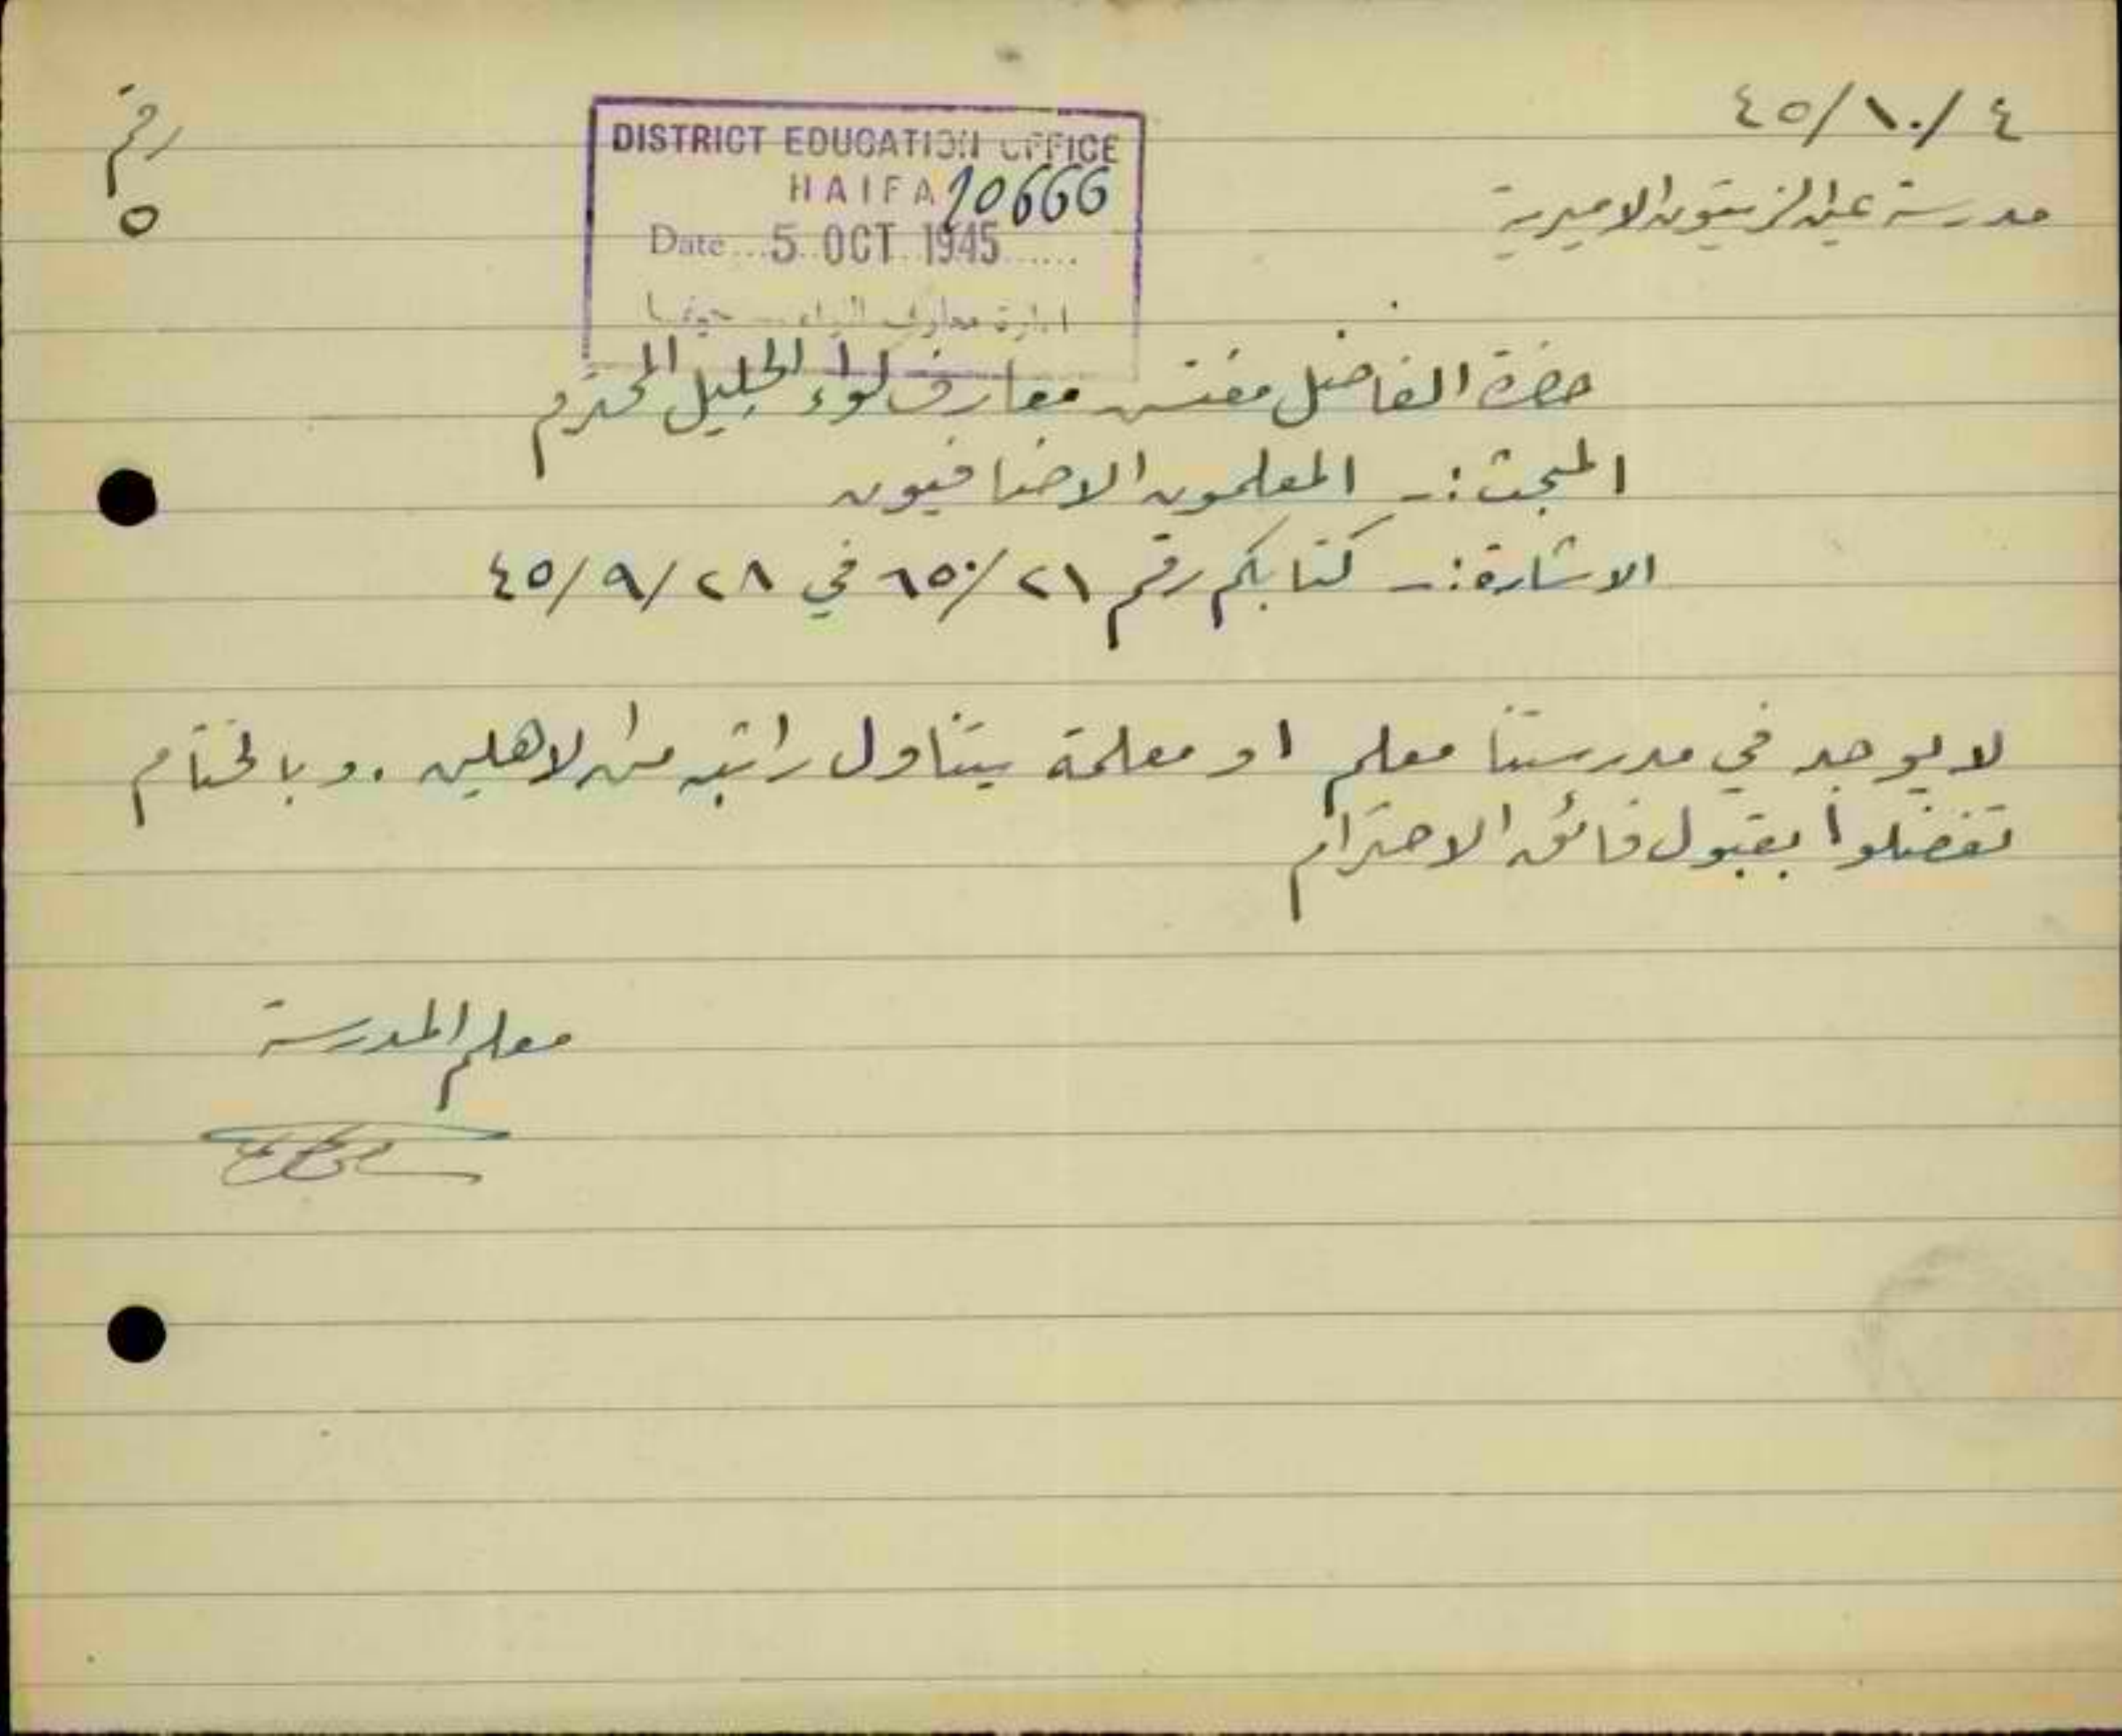 ٤/١٠/٤٥
رقم
٥
مدرسة عين الزيتون الاميرية
DISTRICT EDUCATION OFFICE
HAIFA 10666
Date...5 OCT 1945......
ادارة معارف اللواء - حيفا
حضرة الفاضل مفتش معارف لواء الجليل المحترم
المبحث :- المعلمون الاضافيون
الاشارة :- كتابكم رقم ٦٥٠/٢١ في ٤٥/٩/٢٨
لا يوجد في مدرستنا معلم او معلمة يتناول راتبه من الاهلين . و بالختام
تفضلوا بقبول فائق الاحترام
معلم المدرسة